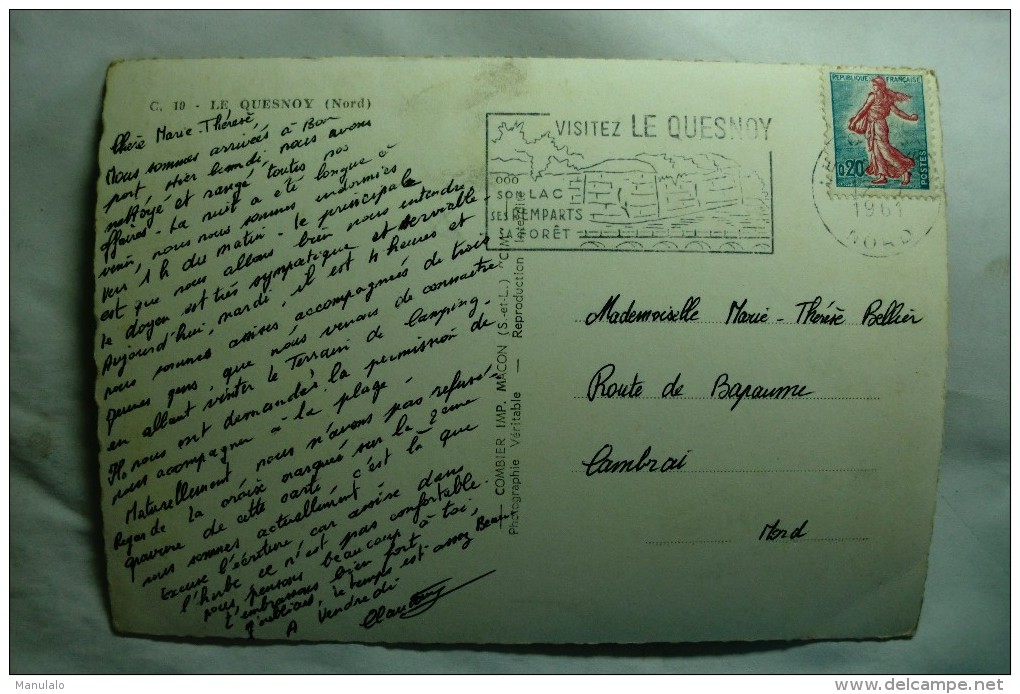 C. 10 - LE QUESNOY (Nord)
Chère Marie-Thérèse,
Nous sommes arrivées à Bon
port hier lundi, nous avons
nettoyé et rangé toutes nos
affaires - La nuit a été longue à
venir, nous nous sommes endormies
vers 1 h du matin - Le principale
est que nous allons bien nous entendre
le doyen est très sympatique et serviable -
Aujourd'hui, mardi, il est 4 heures et
nous sommes assises accompagnées de trois
jeunes gens, que nous venons de connaître
en allant visiter le Terrain de Camping -
Ils nous ont demandés la permission de
nous acompagner à la plage -
Naturellement nous n'avons pas refusé -
Regarde la croise marquée sur la 2ème
gravure de cette carte c'est là que
nous sommes actuellement -
Excuse l'écriture, car assise dans
l'herbe ce n'est pas confortable.
nous pensons beaucoup à toi,
t'embrassons bien fort -
J'oubliais, le temps est assez Beau
A Vendredi
VISITEZ LE QUESNOY
SON LAC
SES REMPARTS
SA FORÊT
REPUBLIQUE FRANÇAISE
0,20
POSTES
1961
NORD
COMBIER IMP. MACON (S.-et-L.) "CIM"
Photographie Véritable — Reproduction Interdite
Mademoiselle Marie-Thérèse Bellier
Route de Bapaume
Cambrai
Nord
Manulalo
www.delcampe.net